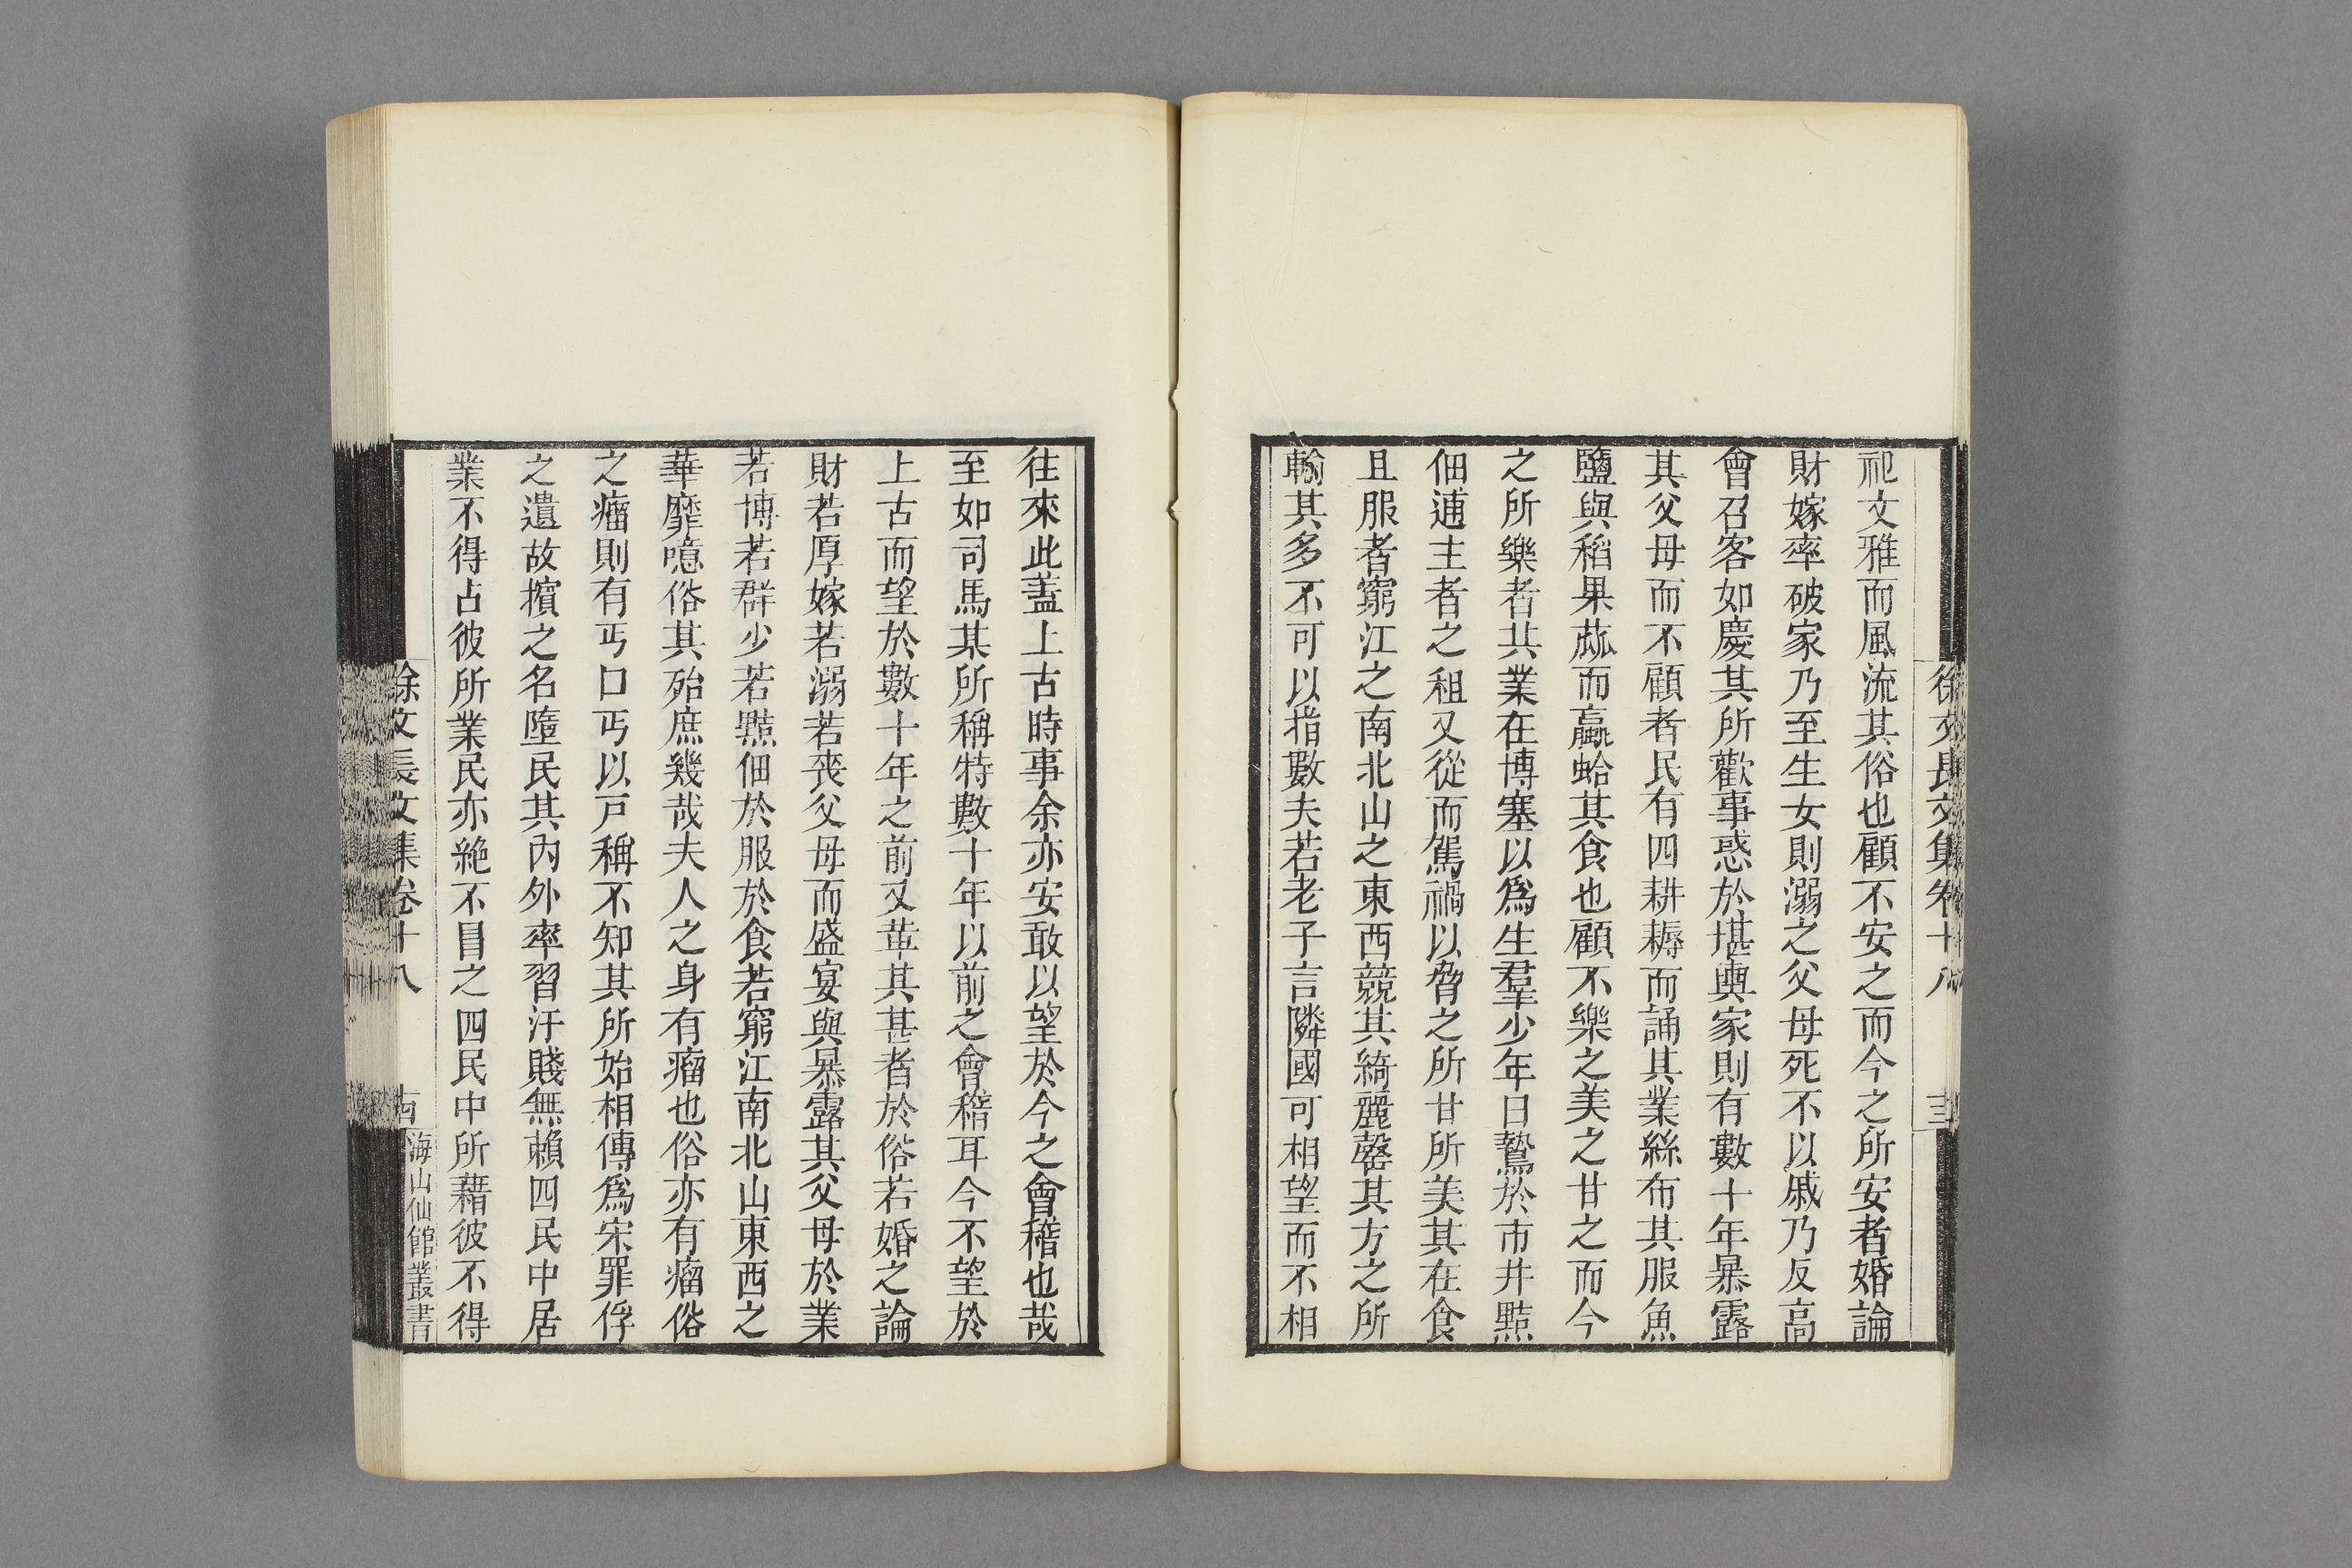 徐文長文集卷十八
祀文雅而風流其俗也顧不安之而今之所安者婚論
財嫁率破家乃至生女則溺之父母死不以戚乃反高
會召客如慶其所歡事惑於堪輿家則有數十年暴露
其父母而不顧者民有四耕耨而誦其業絲布其服魚
鹽與稻果蓏而蠃蛤其食也顧不樂之美之甘之而今
之所樂者共業在博塞以爲生羣少年日鷙於市井黠
佃逋主者之租又從而駕禍以脅之所甘所美其在食
且服者窮江之南北山之東西競其綺麗罄其方之所
輸其多不可以指數夫若老子言隣國可相望而不相
往來此蓋上古時事余亦安敢以望於今之會稽也哉
至如司馬某所稱特數十年以前之會稽耳今不望於
上古而望於數十年之前又革其甚者於俗若婚之論
財若厚嫁若溺若喪父母而盛宴與暴露其父母於業
若博若群少若黠佃於服於食若窮江南北山東西之
華靡噫俗其殆庶幾哉夫人之身有瘤也俗亦有瘤俗
之瘤則有丐口丐以戸稱不知其所始相傳爲宋罪俘
之遺故擯之名墮民其內外率習汙賤無賴四民中居
業不得占彼所業民亦絶不冒之四民中所藉彼不得
徐文長文集卷十八
海山仙館叢書